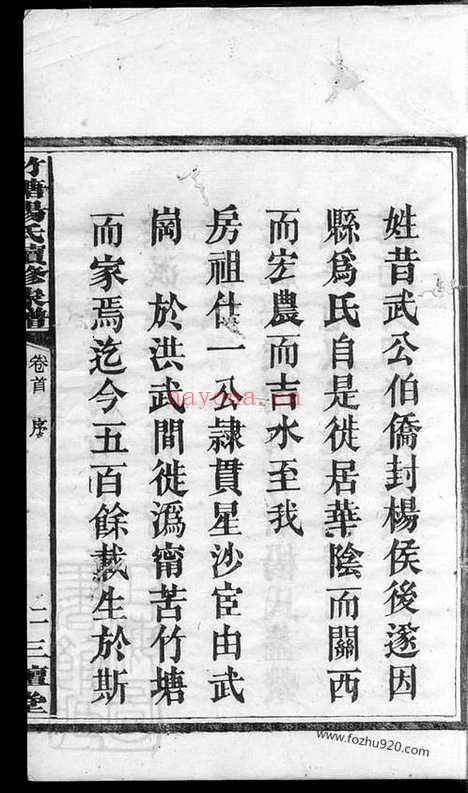 姓昔武公伯僑封楊侯後遂因
縣爲氏自是徙居華陰而關西
而宏農而吉水至我
房祖仕一公隷貫星沙宦由武
崗　於洪武間徙溈甯苦竹塘
而家焉迄今五百餘載生於斯
竹塘楊氏續修家譜
卷首　序
二
三鱣堂
nayona.cn
www.fozhu920.com